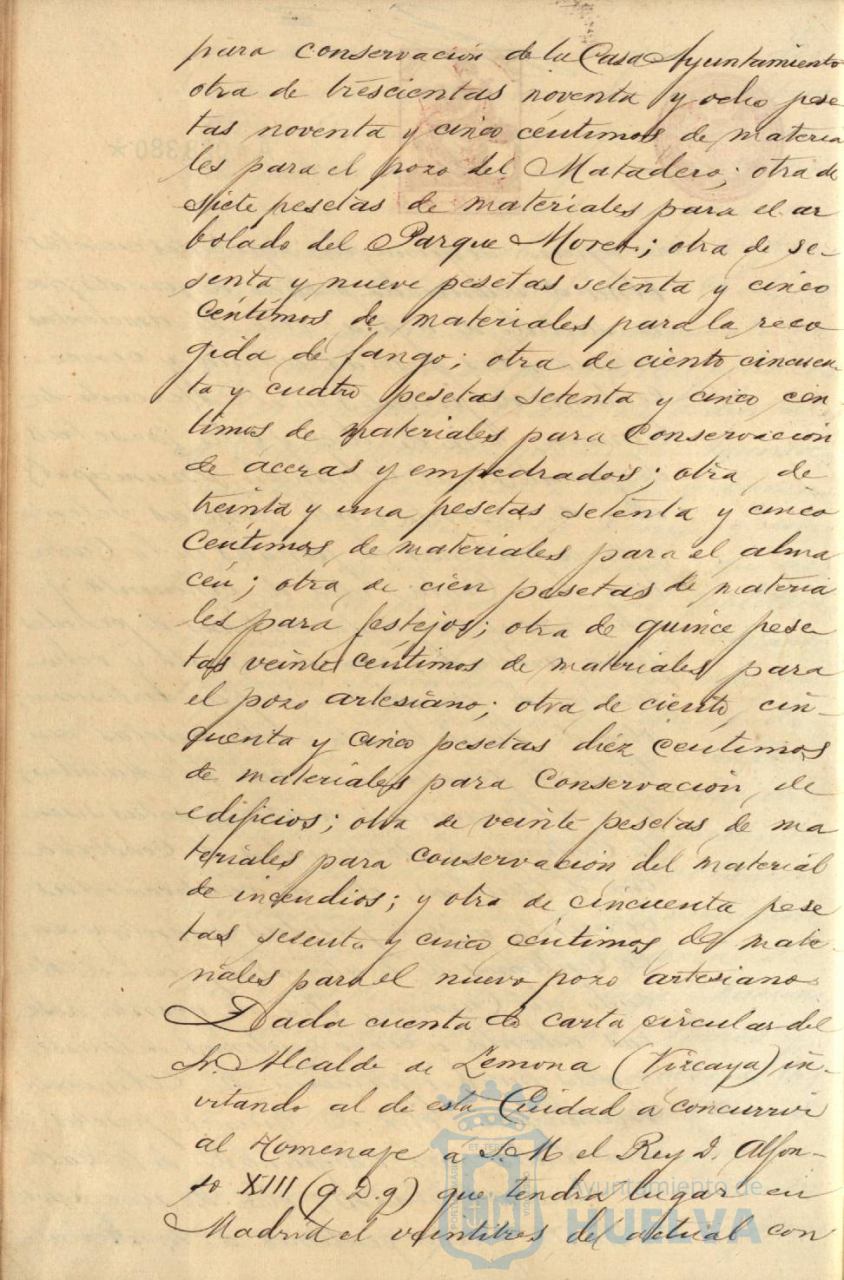 para conservación de la Casa Ayuntamiento
otra de trescientas noventa y ocho pese
tas noventa y cinco céntimos de materia
les para el pozo del Matadero; otra de
siete pesetas de materiales para el ar
bolado del Parque Moret; otra de se-
senta y nueve pesetas setenta y cinco
céntimos de materiales para la reco
gida de fango; otra de ciento cincuen-
ta y cuatro pesetas setenta y cinco cén
timos de materiales para Conservación
de aceras y empedrados; otra de
treinta y una pesetas setenta y cinco
céntimos de materiales para el alma
cén; otra de cien pesetas de materia
les para festejos; otra de quince pese
tas veinte céntimos de materiales para
el pozo artesiano; otra de ciento cin-
quenta y cinco pesetas diez centimos
de materiales para Conservación de
edificios; otra de veinte pesetas de ma
teriales para conservación del material
de incendios; y otra de cincuenta pese
tas sesenta y cinco céntimos de mate-
riales para el nuevo pozo artesiano
Dada cuenta de carta circular del
Sr. Alcalde de Lemona (Vizcaya) in-
vitando al de esta Ciudad a concurrir
al Homenaje a S. M el Rey D. Alfon-
so XIII (q D. g) que tendra lugar en
Madrid el veintitres del actual con
Ayuntamiento de
HUELVA